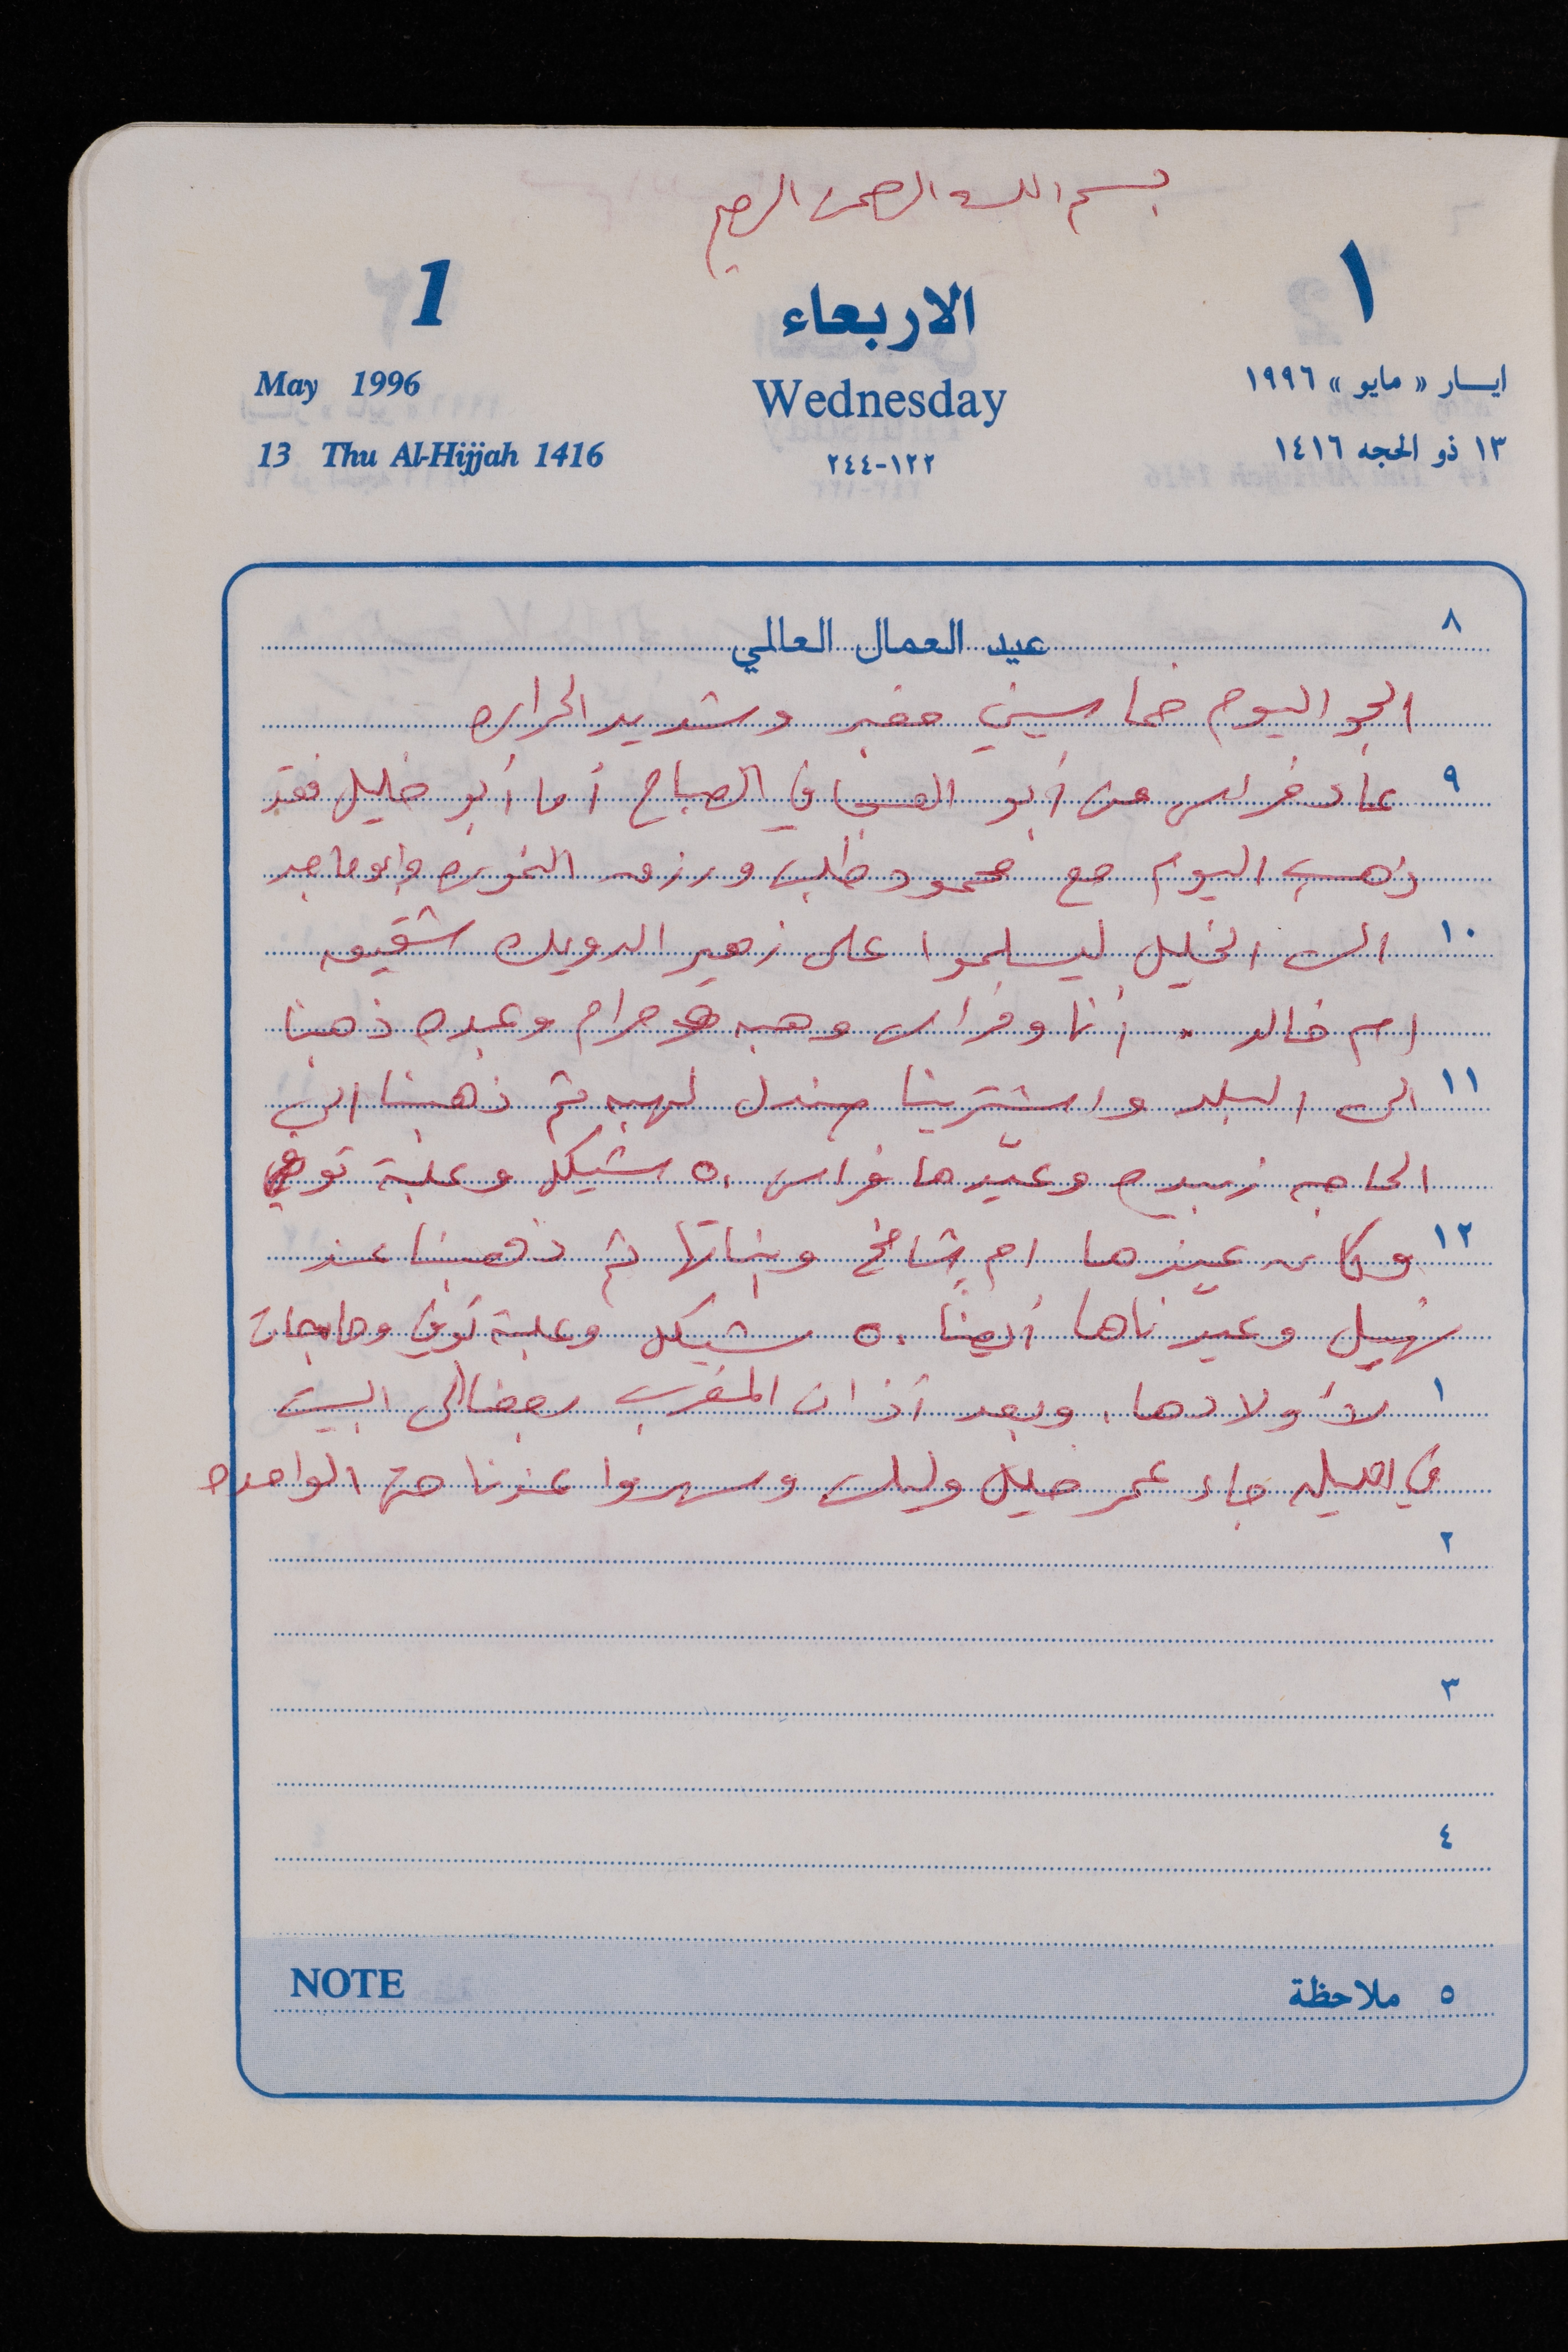 بسم الله الرحمن الرحيم
1 الاربعاء ١
May 1996 Wednesday ايسار « مايو » ١٩٩٦
13 Thu Al-Hijjah 1416 ١٢٢-٢٤٤ ١٣ ذو الحجه ١٤١٦
٨ عيد العمال العالمي
الجو اليوم خماسيني مغبر وشديد الحراره
٩ عاد فراس من أبو في الصباح أما أبو خليل فقد
ذهب اليوم مع محمود ورزمه وابو ماجد
١٠ الى الخليل ليسلموا على زهير الدويك شقيق
ام خالد . أنا وفراس وهبه ومرام وعبده ذهبنا
١١ الى البلد واشترينا صندل لهبه ثم ذهبنا الى
الحاجه زبيده وعيّدها فراس ٥٠ شيكل وعلبة توفي
١٢ وكان عندها ام وبناتها ثم ذهبنا عند
نهيل وعيّدناها أيضاً ٥٠ شيكل وعلبة توفي وحاجات
١ لأولادها . وبعد أذان المغرب رجعنا الى البيت
في الليل جاء عمر خليل وليلى وسهروا عندنا حتى الواحده
٢
٣
٤
NOTE ٥ ملاحظة